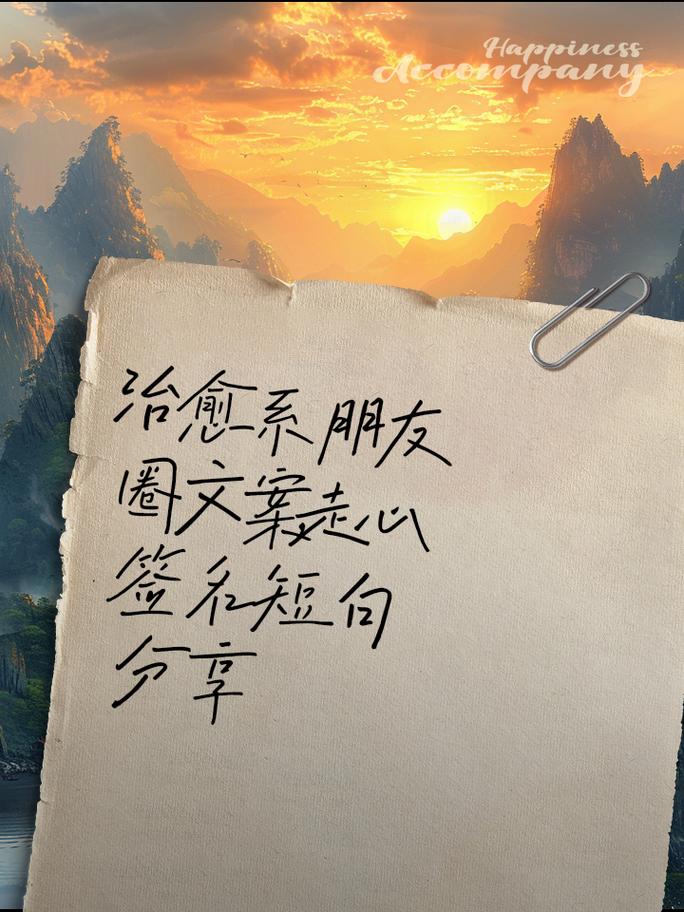 Happiness
Accompany
治愈系朋友
圈文案走心
签名短句
分享